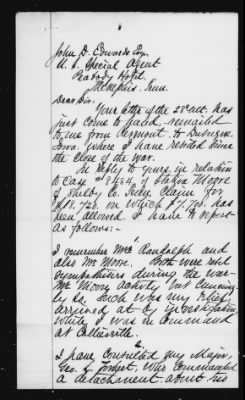 John D. Edwards Esq.
U. S. Special Agent
Peabody Hotel.
Memphis, Tenn.
Dear Sir:
Your letter of the 28" ult. has
just come to hand, remailed
to me from Vermont, to Dubuque,
Iowa, where I have resided since
the close of the war.
In reply to yours, in relation
to Case of Moore
of Shelby Co. Tenn, Claim for
on which $7,700. has
been allowed, I have to report
as follows:-
I remember Mrs Randolph and
also Mr Moore. Both were rebel
sympathizers during the war-
Mr Moore actively but
by her. Such was my belief
arrived at by investigation
while I was in command
at Collierville.
I have consulted my Major,
Geo. L. who commanded
a detachment about two